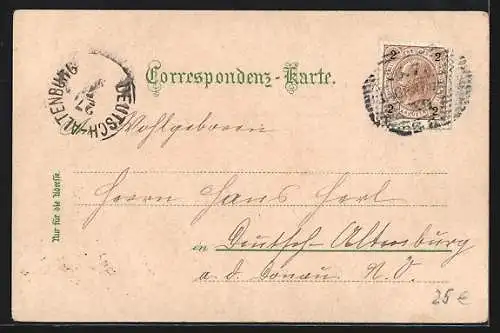 Correspondenz-Karte.
DEUTSCH-ALTENBURG
27
2 2
Wohlgeboren
Herrn Hans Herl
in Deutsch-Altenburg
a. d. Donau N. Ö.
Nur für die Adresse.
25 €